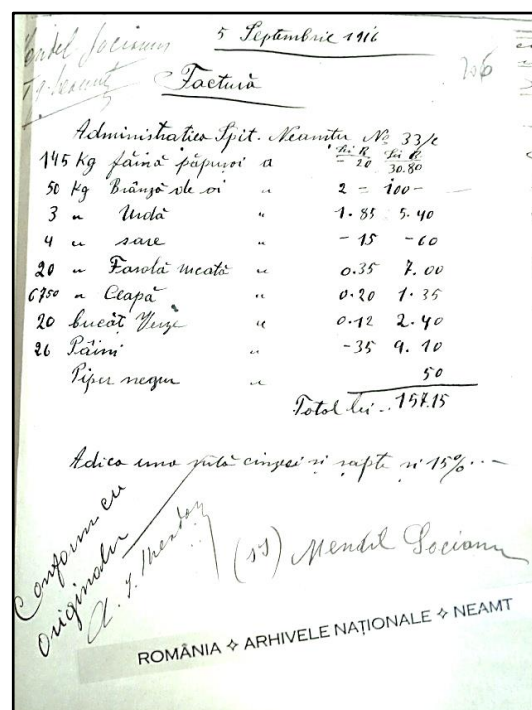 Mendel Socianu
5 Septembrie 1916
Tg. Neamț
Factură
Administratia Spit. Neamtu No 33/c
Lei R Lei R
145 Kg făină păpușoi a - 20 30.80
50 Kg Brânză de oi " 2 = 100 -
3 " Urdă " 1.85 5.40
4 " sare " - 15 - 60
20 " Fasolă " 0.35 7.00
6750 " Ceapă " 0.20 1.35
20 bucăt Verze " 0.12 2.40
26 Pâini " - 35 9.10
Piper negru " 50
Total lei .. 157.15
Adica una sută cinzeci si sapte si 15%
Conform cu
originalu
(ss) Mendel Socianu
ROMÂNIA ✧ ARHIVELE NAȚIONALE ✧ NEAMT